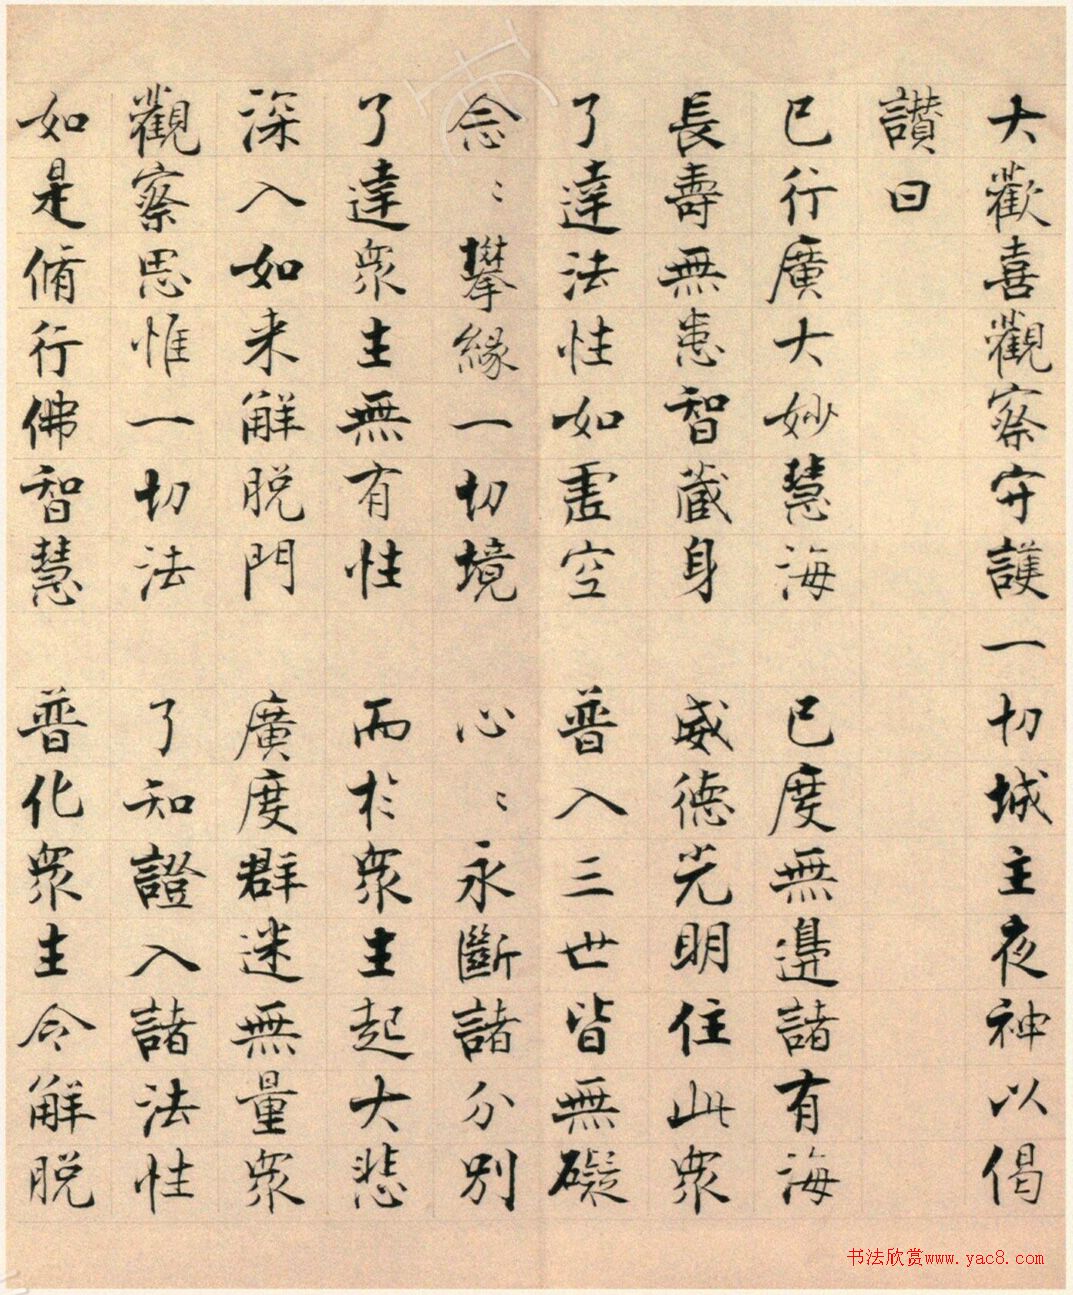 大歡喜觀察守護一切城主夜神以偈
讚曰
已行廣大妙慧海 已度無邊諸有海
長壽無患智藏身 威德光明住此衆
了達法性如虛空 普入三世皆無礙
念〻攀緣一切境 心〻永斷諸分別
了達衆生無有性 而於衆生起大悲
深入如来解脱門 廣度群迷無量衆
觀察思惟一切法 了知證入諸法性
如是脩行佛智慧 普化衆生令解脱
书法欣赏www.yac8.com